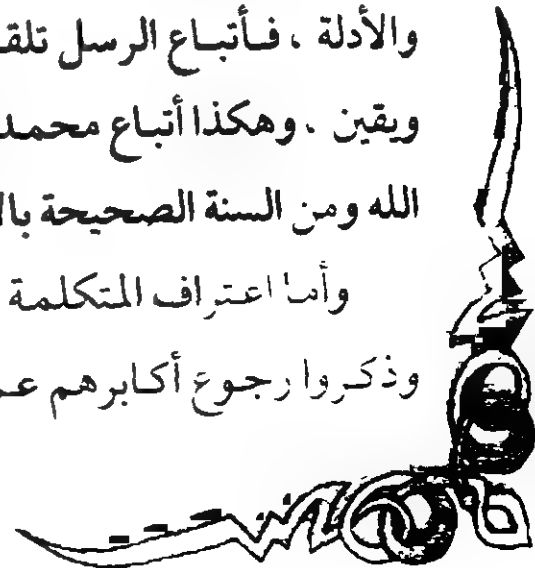 والأدلة ، فأتباع الرسل تلقـ
ويقين . وهكذا أتباع محمد
الله ومن السنة الصحيحة بالـ
وأما اعتراف المتكلمة
وذكروا رجوع أكابرهم عـ